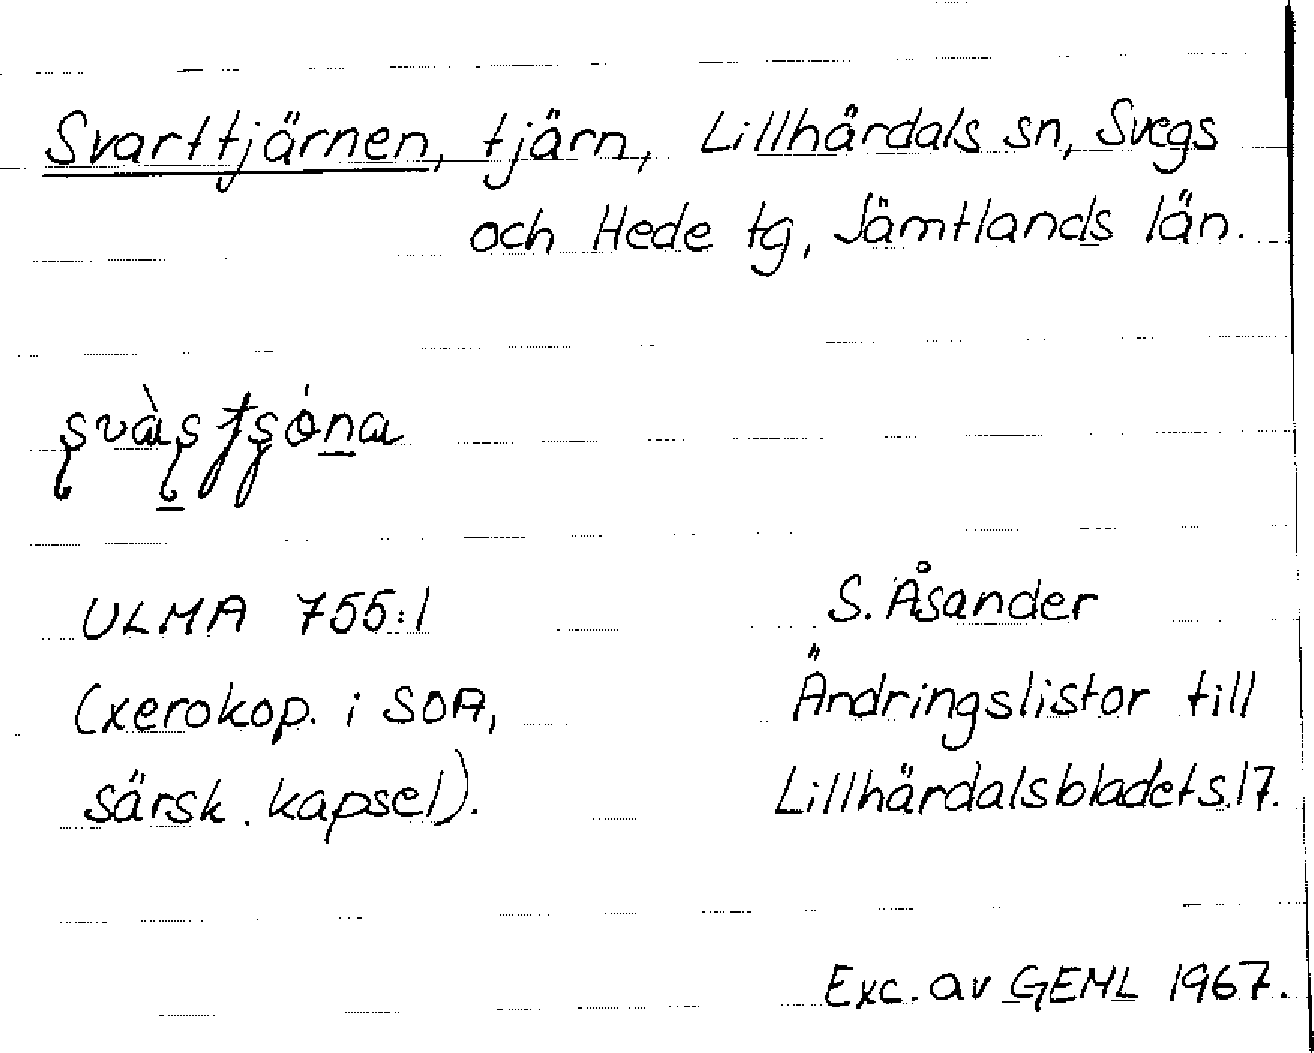 Svarttjärnen, tjärn, Lillhärdals sn, Svegs
och Hede tg, Jämtlands län.
ULMA 755:1
(xerokop. i SOA,
särsk. kapsel).
S. Åsander
Ändringslistor till
Lillhärdalsbladet s.17.
Exc. av GEML 1967.